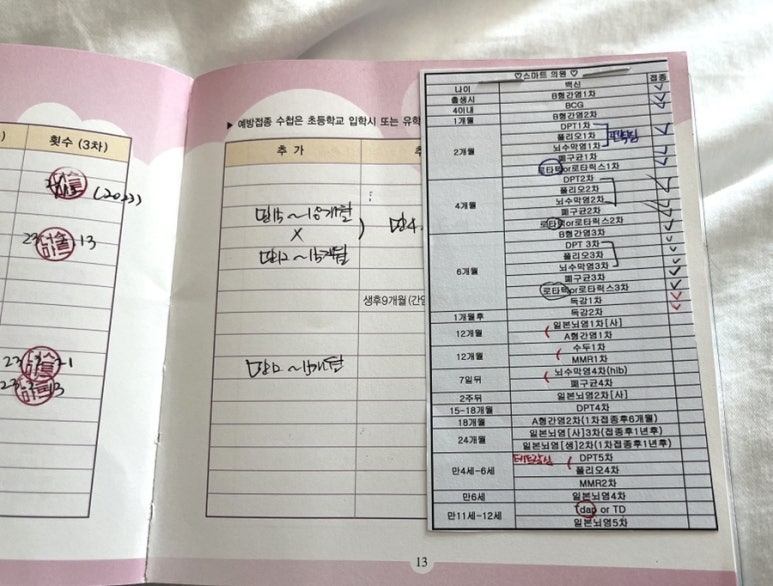 횟수 (3차)
(2023)
23 13
23 1
23 13
▶ 예방접종 수첩은 초등학교 입학시 또는 유학
추 가
만15~18개월
만12~15개월
만4
생후9개월 (간염
만12~15개월
13
♡스마트 의원 ♡
나이 백신 접종
출생시 B형간염1차
4이내 BCG
1개월 B형간염2차
2개월 DPT1차
폴리오1차
뇌수막염1차
폐구균1차
로타텍or로타릭스1차
4개월 DPT2차
폴리오2차
뇌수막염2차
폐구균2차
로타텍or로타릭스2차
6개월 B형간염3차
DPT 3차
폴리오3차
뇌수막염3차
폐구균3차
로타텍or로타릭스3차
독감1차
1개월후 독감2차
12개월 일본뇌염1차[사]
A형간염1차
12개월 수두1차
MMR1차
7일뒤 뇌수막염4차(hib)
폐구균4차
2주뒤 일본뇌염2차[사]
15-18개월 DPT4차
18개월 A형간염2차(1차접종후6개월)
24개월 일본뇌염[사]3차(접종후1년후)
일본뇌염[생]2차(1차접종후1년후)
만4세-6세 DPT5차
폴리오4차
MMR2차
만6세 일본뇌염4차
만11세-12세 Tdap or TD
일본뇌염5차